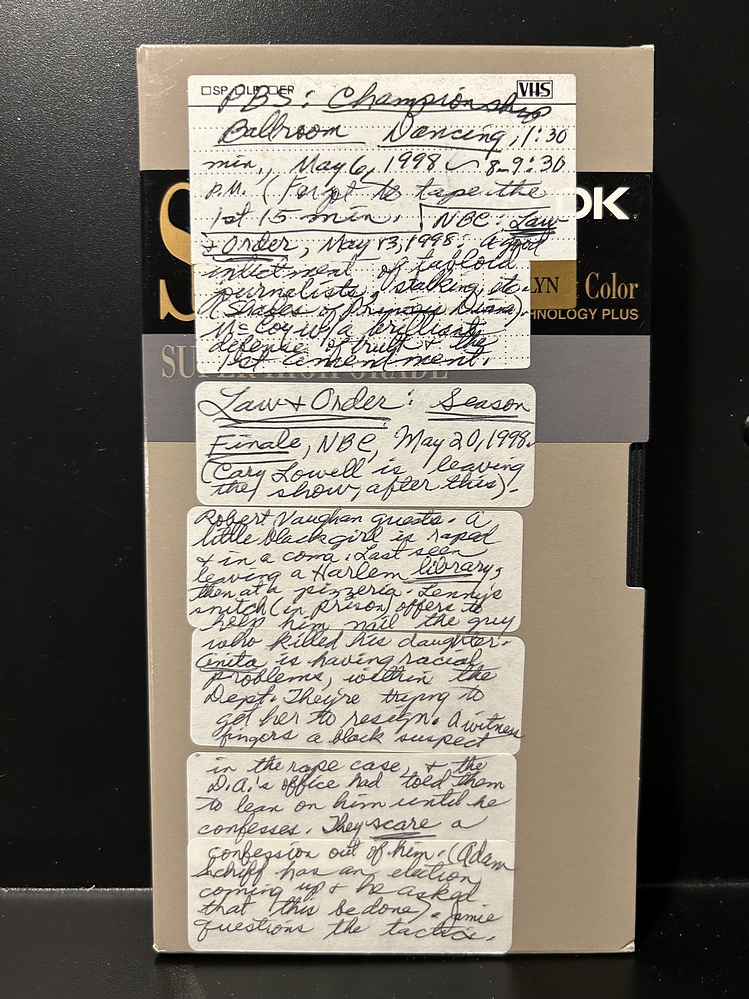 □SP □LP □EP VHS
PBS: Championship
Ballroom Dancing, 1:30
min., May 6, 1998 8-9:30
P.M. (Forgot to tape the
1st 15 min. NBC: Law
DK
+ Order, May 13, 1998: a good
indictment of tabloid
journalists, stalking, etc.
LYN Color
(Shades of Princess Diana).
HNOLOGY PLUS
McCoy w/a brilliant
defense of truth + the
1st Amendment.
SUPER HIGH GRADE
Law + Order: Season
Finale, NBC, May 20, 1998.
(Cary Lowell is leaving
the show, after this).
Robert Vaughan guests. A
little black girl is raped
+ in a coma. Last seen
leaving a Harlem library,
then at a pizzeria. Lenny's
snitch (in prison) offers to
help him nail the guy
who killed his daughter.
Anita is having racial
problems, within the
Dept. They're trying to
get her to resign. A witness
fingers a black suspect
in the rape case, + the
D.A.'s office had told them
to lean on him until he
confesses. They scare a
confession out of him. (Adam
Schiff has an election
coming up + he asked
that this be done). Jamie
questions the tactics.